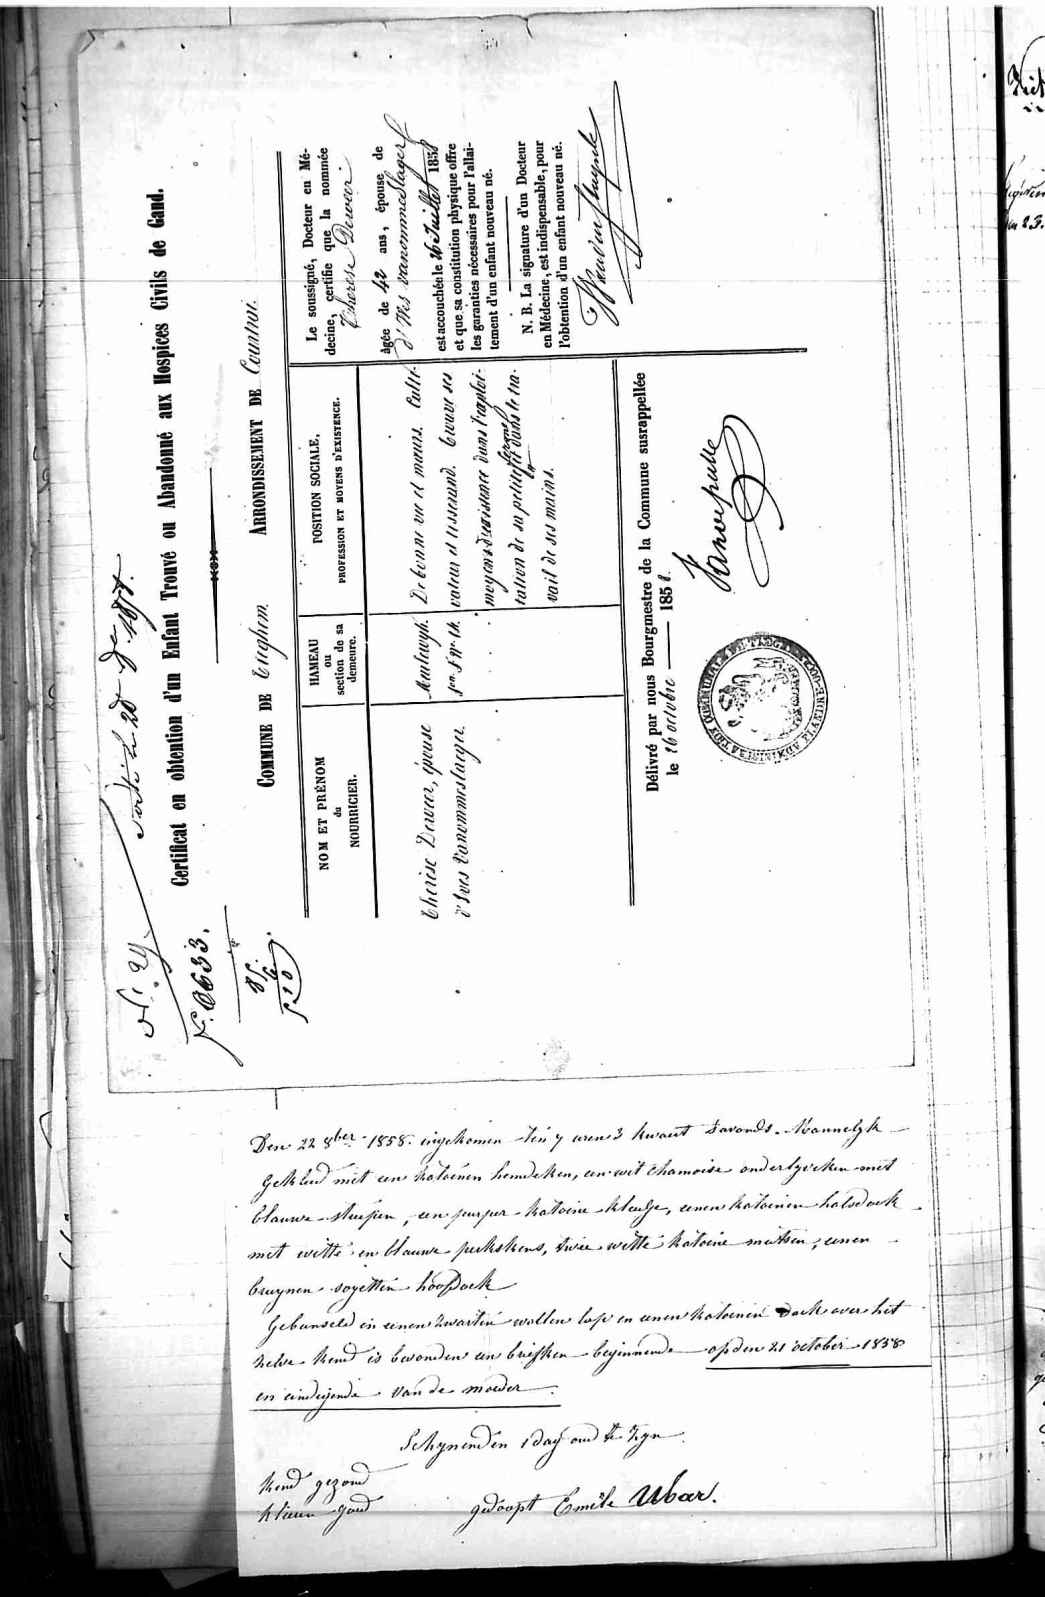 N.° 29.
Sortie le 20 8bre 1858.
F.° 6633.
Certificat en obtention d'un Enfant Trouvé ou Abandonné aux Hospices Civils de Gand.
COMMUNE DE Tieghem. ARRONDISSEMENT DE Courtrai.
NOM ET PRÉNOM
du
NOURRICIER.
HAMEAU
ou
section de sa
demeure.
POSITION SOCIALE.
PROFESSION ET MOYENS D'EXISTENCE.
Thérèse Deweer, épouse
d'Ives Vanommeslager.
Meulewyk.
son S. N° 14.
De bonne vie et mœurs. Culti-
vateur et tisserand. Trouve ses
moyens d'existence dans l'exploi-
tation de sa petite ferme et dans le tra-
vail de ses mains.
Le soussigné, Docteur en Mé-
decine, certifie que la nommée
Thérèse Deweer
âgée de 42 ans, épouse de
d'Ives Vanommeslager
est accouchée le 26 Juillet 1858
et que sa constitution physique offre
les garanties nécessaires pour l'allai-
tement d'un enfant nouveau né.
N. B. La signature d'un Docteur
en Médecine, est indispensable, pour
l'obtention d'un enfant nouveau né.
Délivré par nous Bourgmestre de la Commune susrappellée
le 16 octobre 1858.
Den 22 8ber 1858. ingekomen ten 7 uren 3 kwaert s'avonds. Mannelyk
Gekleed met een katoenen hemdeken, een wit chamoise onderlyveken met
blauwe streepen, een purper katoene kleedje, eenen katoenen halsdoek
met witte en blauwe perkskens, twee witte katoene mutsen, eenen
bruynen sayetten hoofdoek
Gebunseld in eenen zwarten wollen lap en eenen katoenen doek over het
zelve kind is bevonden een briefken beginnende op den 21 october 1858
en eindigende van de moeder.
Schynenden 1 dag oud te zyn.
kind gezond
kleeren goed
gedoopt Emile Ubar.